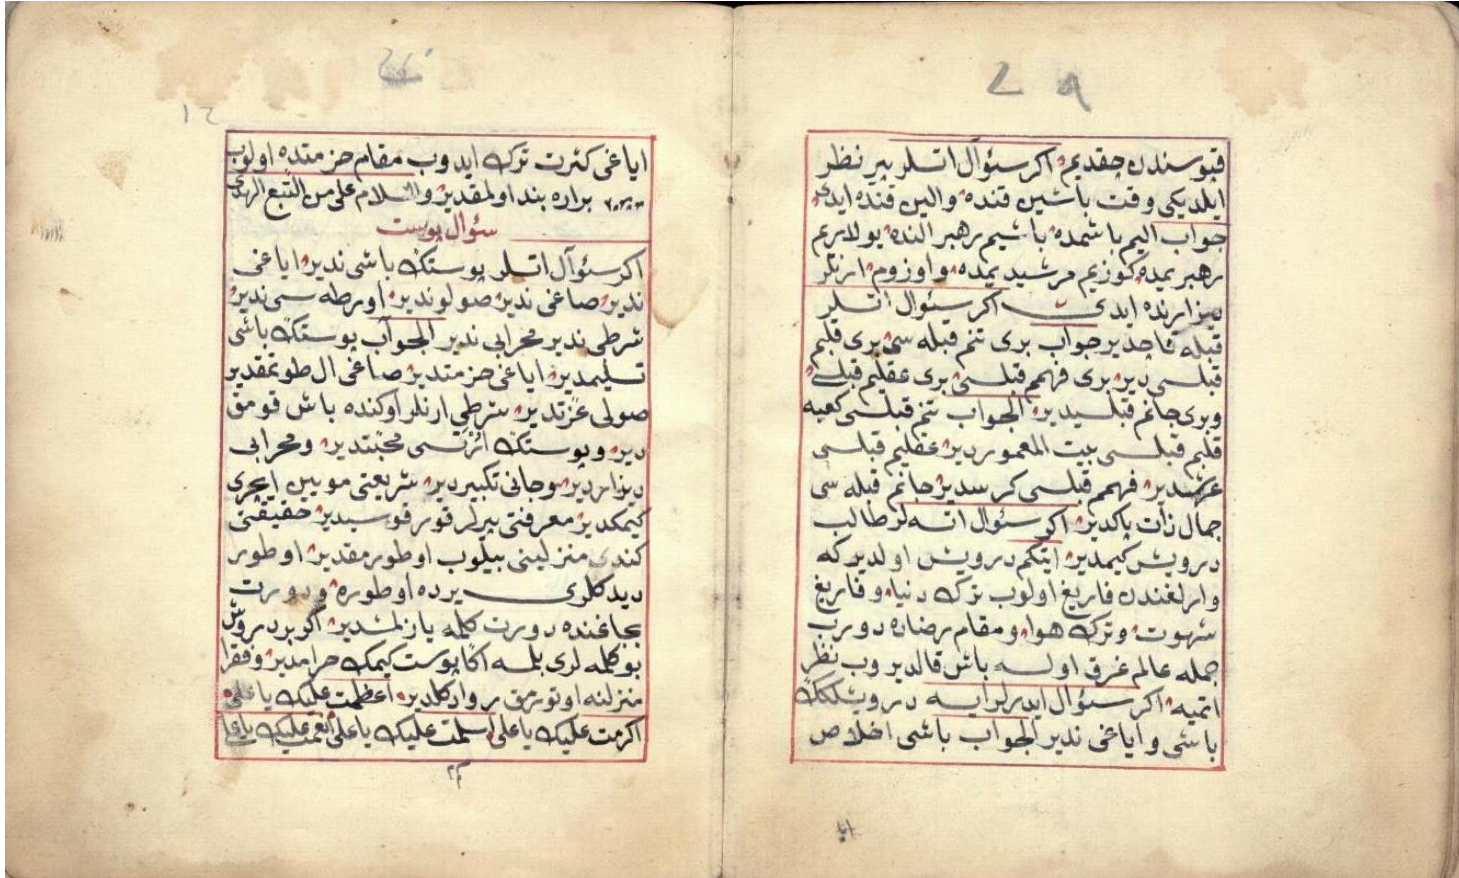 قپوسندن چقدیم اکر سئوآل اتسلر پیر نظر
ایلدیکی وقت باشین قنده والین قنده ایدی
جواب الیم باشمده باشیم رهبر النده یولارم
رهبر یمده کوزیم مرشیدیمده و اوزوم ارنلر
دیزارنده ایدی اکر سئوال اتسلر
قبله قاچدیر جواب بری تنم قبله سی بری قلبم
قبلسی دیر بری فهمم قبلسی بری عقلیم قبلسی
وبری جانم قبلسیدیر الجواب تنم قبلسی کعبه
قلبم قبلسی بیت المعموردیر عقلیم قبلسی
عرشدیر فهمم قبلسی کرسدیر جانم قبله سی
جمال ذات پاکدیر اکر سئوال اتسه لر طالب
درویش کیمدیر ایتکم درویش اولدیر که
وارلغندن فاریغ اولوب ترک دنیا و فاریغ
شهوت و ترک هوا و مقام رضاده دورب
جمله عالم غرق اولسه باش قالدیروب نظر
اتمیه اکر سئوال ایدرلرایسه درویشلکک
باشی و ایاغی ندیر الجواب باشی اخلاص
ایاغی کثرت ترک ایدوب مقام خزمتده اولوب
براره بند اولمقدیر والسلام علی من التبع الهدی
سئوال پوست
اکر سئوآل اتسلر پوستک باشی ندیر ایاغی
ندیر صاغی ندیر صولو ندیر اورطه سی ندیر
شرطی ندیر محرابی ندیر الجوآب پوستک باشی
تسلیمدیر ایاغی خزمتدیر صاغی ال طوتمقدیر
صولی عزتدیر شرطی ارنلر اوکنده باش قومق
دیر و پوستک ارتسی محبتدیر و محرابی
دیزاردیر وجانی تکبیردیر شریعتی مویین ایچری
کیمکدیر معرفتی بیرلر قورقوسیدیر حقیقتی
کندی منزلینی بیلوب اوطورمقدیر اوطور
دیدکلری یرده اوطوره و دورت
بجاغنده دورت کلمه یازلمشدیر اکر بر درویش
بو کلمه لری بلمسه اکا پوست کیمک حرامدیر و فقرا
منزلنه اوتورمق روا دکلدیر اعظمت علیک یا علی
اکرمت علیک یا علی سلمت علیک یا علی انعمت علیک یا علی